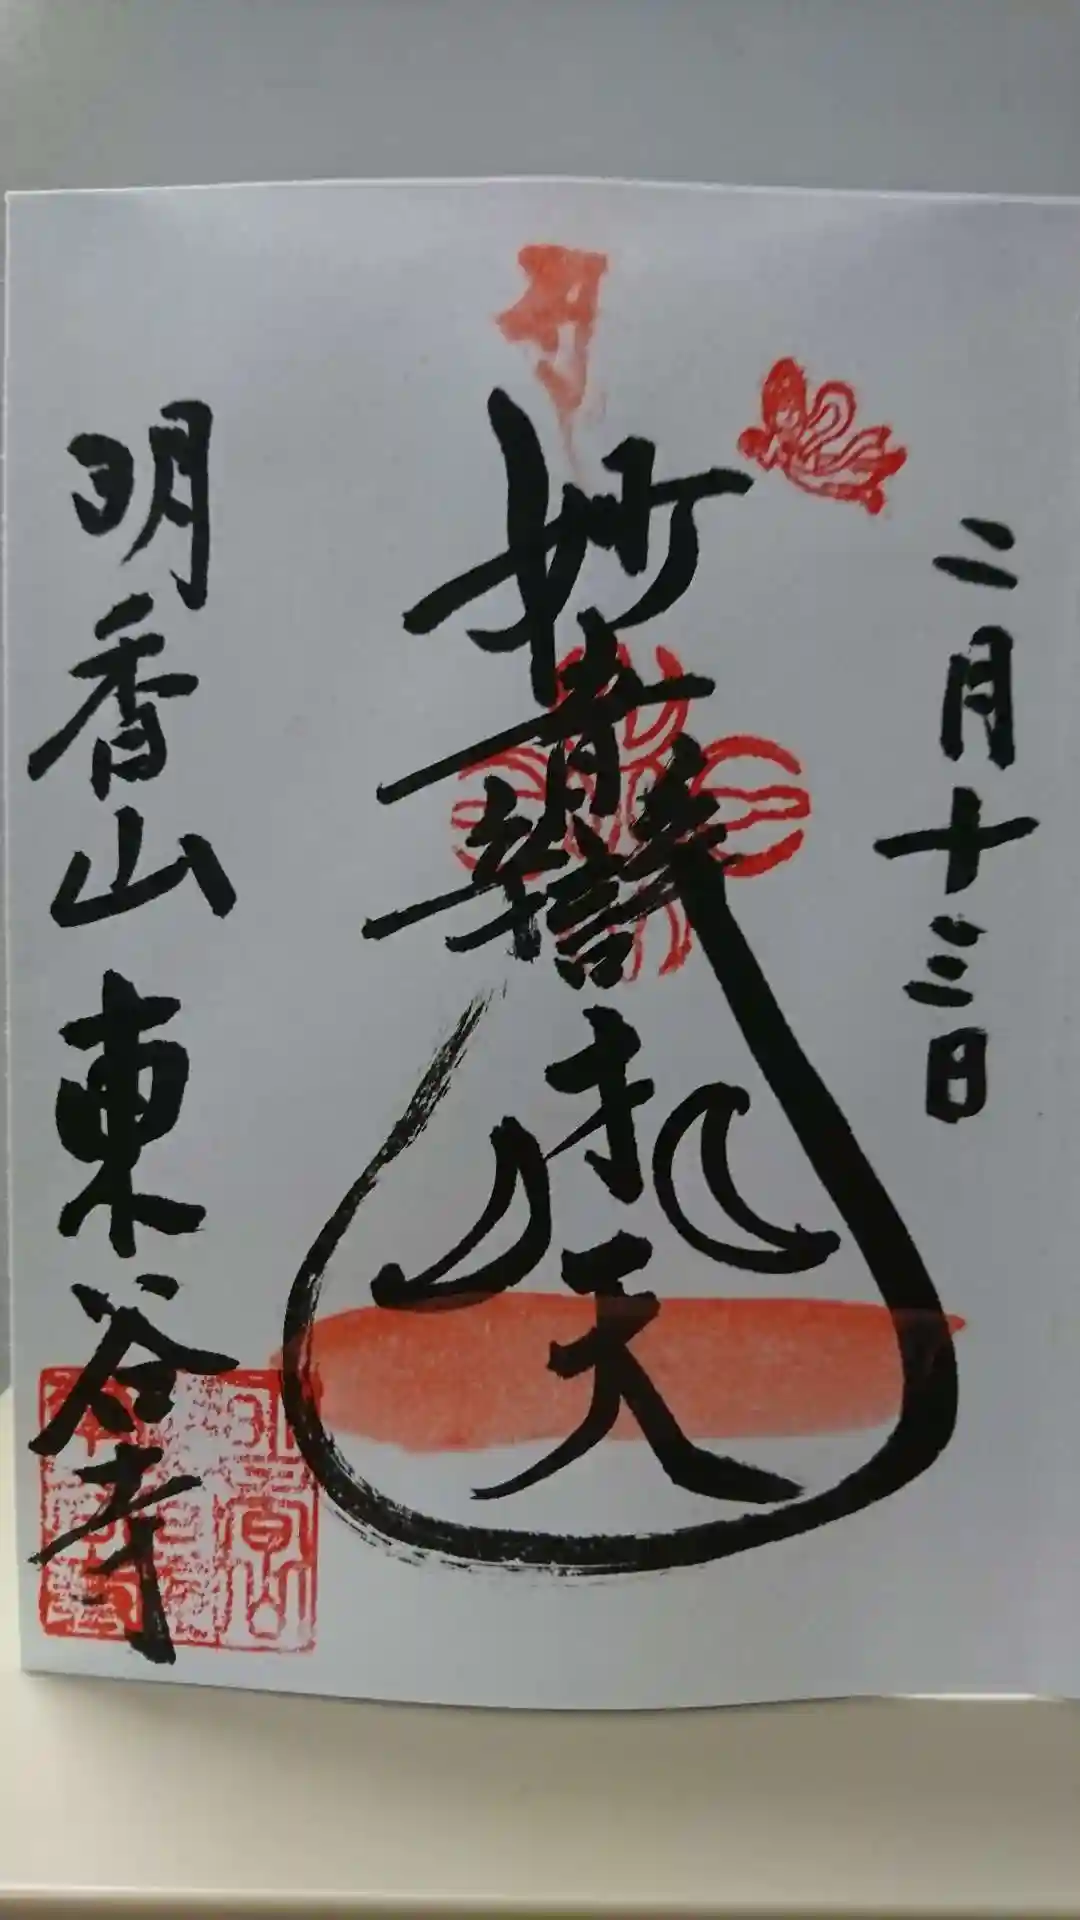 二月十三日
妙音辯才天
明香山 東谷寺